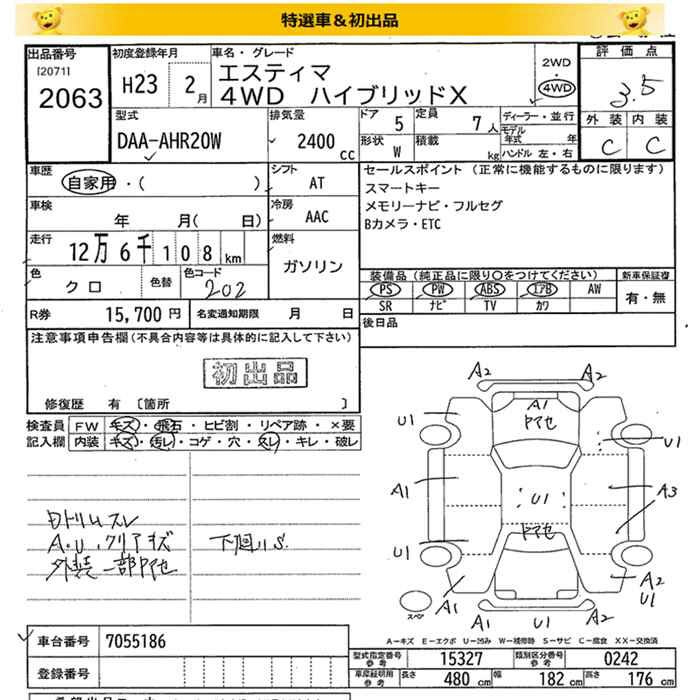 特選車＆初出品
出品番号
[2071]
2063
初度登録年月
H23
2月
車名・グレード
エスティマ
4WD ハイブリッドX
2WD
・
4WD
評価点
3.5
外装 内装
C C
型式
DAA-AHR20W
排気量
2400 cc
ドア
5
定員
7人
形状
W
積載
kg
ディーラー・並行
モデル年式 年
ハンドル 左・右
車歴
自家用・( )
シフト
AT
車検
年 月( 日)
冷房
AAC
走行
12万6千108km
燃料
ガソリン
色
クロ
色替
色コード
202
R券
15,700円
名変通知期限 月 日
セールスポイント（正常に機能するものに限ります）
スマートキー
メモリーナビ・フルセグ
Bカメラ・ETC
装備品（純正品に限り○をつけてください）
新車保証書
PS PW ABS エアB AW
SR ナビ TV カワ
有・無
後日品
注意事項申告欄（不具合内容等は具体的に記入して下さい）
初出品
修復歴 有 〔箇所 〕
検査員記入欄
FW キズ・飛石・ヒビ割・リペア跡・×要
内装 キズ・汚レ・コゲ・穴・スレ・キレ・破レ
内トリムスレ
A・U、クリアキズ
外装一部ヤケ
下廻りS
A2 A2
A1
U1
U1
A1
U1
A3
U1
A2
U1
A1 A1 U1 A2
スペア
A－キズ E－エクボ U－凹み W－補修跡 S－サビ C－腐食 XX－交換済
車台番号
7055186
登録番号
型式指定番号 参考
15327
類別区分番号 参考
0242
車庫証明用 参考
長さ 480 cm
幅 182 cm
高さ 176 cm